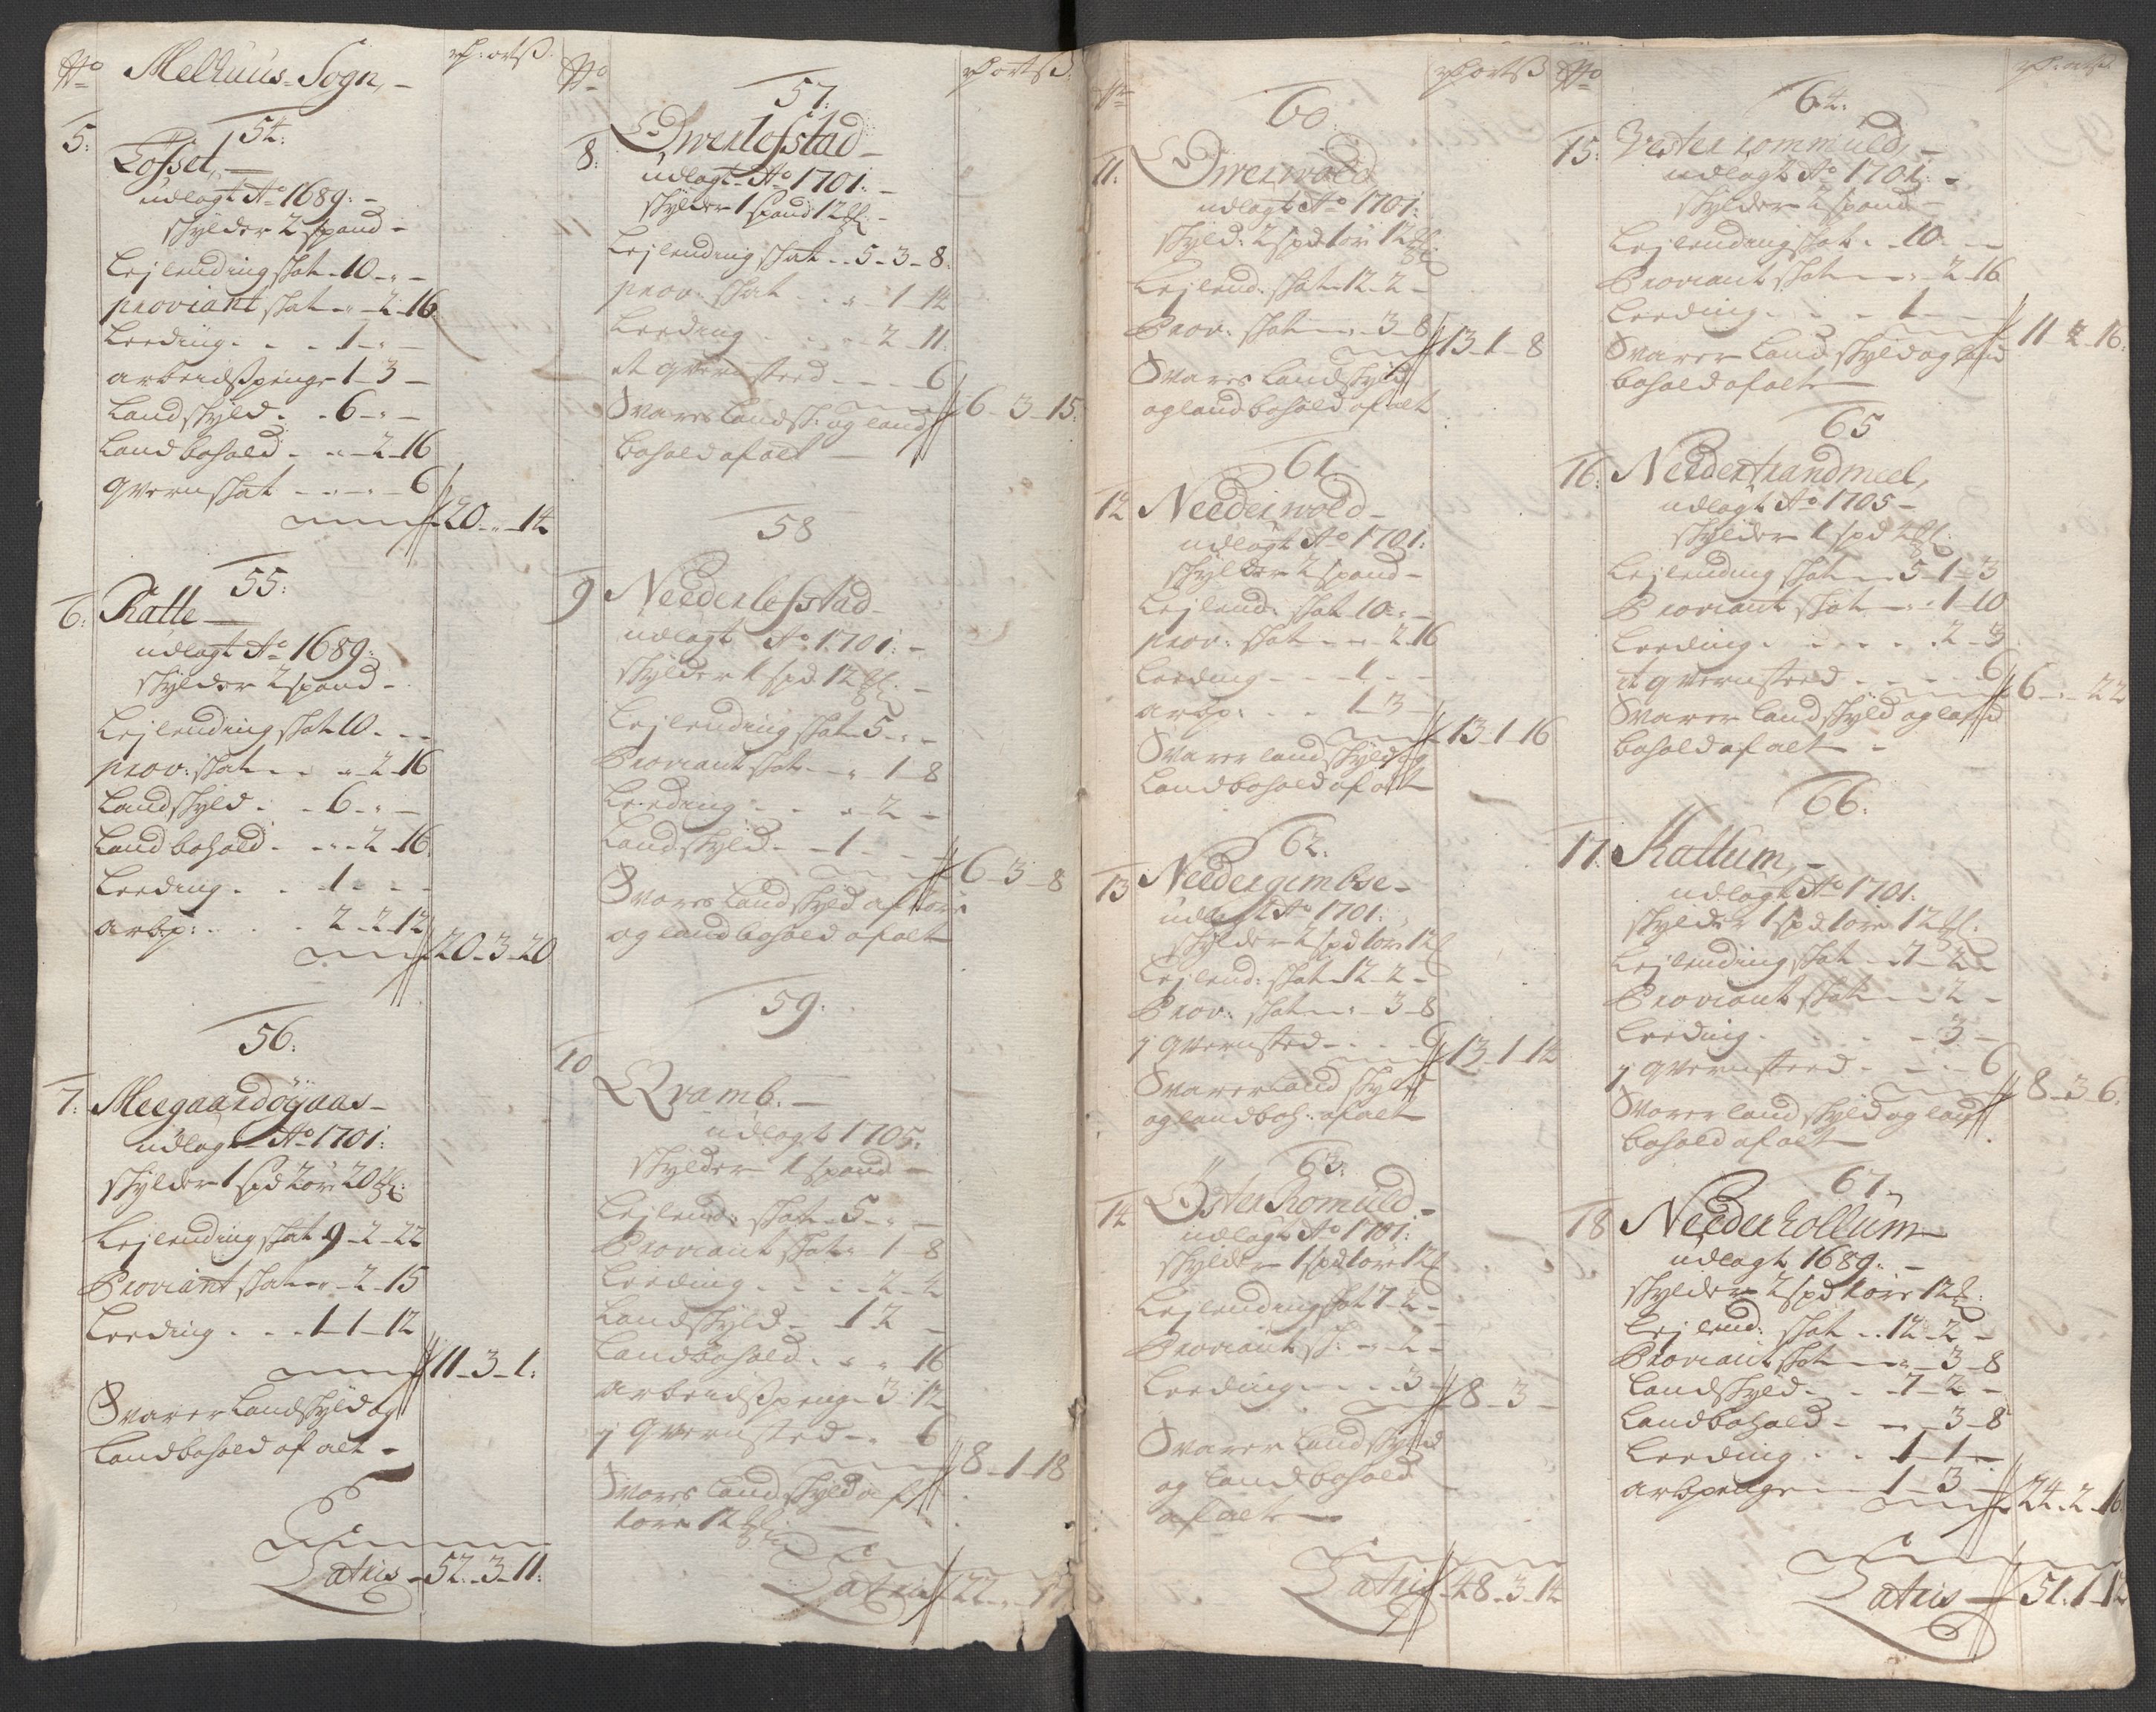 No Melhuus Sogn,
54:
5: Losset,
udlagt Ao 1689:
skylder 2 spand
Lejlending skat 10 - " -
proviant skat - " - 2 - 16
Leeding . . . 1 - " -
arbeidspenge 1 - 3 -
Landskyld . . 6 - " -
Landbohold . " - 2 - 16
qvernskat - - " - 6
20 - " - 14
55:
6: Ratte
udlagt Ao 1689:
skylder 2 spand -
Lejlending skat 10 . - -
prov: skat - " - 2 - 16
Landskyld . . 6 - " -
Landbohold . - " - 2 - 16
Leeding . . 1 - - -
arbp: . . . 2 - 2 - 12
20 - 3 - 20
56:
7: Meegaardøÿaas
udlagt Ao 1701:
skylder 1 spd 2 øre 20
Lejlending skat 9 - 2 - 22
Proviant skat - " - 2 - 15
Leeding . . . 1 - 1 - 12
11 - 3 - 1:
Svarer Landskyld og
Landbohold af alt -
Latris - 52 - 3 - 11:
No
57:
8: Øwerlesstad
udlagt Ao 1701:
skylder 1 spand 12
Lejlending skat . . 5 - 3 - 8
prov: skat . . " - 1 - 14
Leeding . . . " - 2 - 11
it qvernsteed - - - 6
6 - 3 - 15
Svarer Landsk: og land
bohold af alt
58
9 Neederlesstad
udlagt Ao 1701:
skylder 1 spd 12
Lejlending skat 5 - " -
Proviant skat - " - 1 - 8
Leeding . . . " - 2 -
Landskyld - - 1 - - -
6 - 3 - 8
Svarer Landskyld af 1 øre
og landbohold af alt
59:
10 Qvamb.
udlagt 1705:
skylder 1 spand
Lejlend: skat 5 - " -
Proviant skat " 1 - 8
Leeding . . . - 2 - 2
Landskyld - 1 2 -
Landbohold . " " 16
arbeidspenge 3 - 12
j qvernsted - " 6
8 - 1 - 18
Svarer Landskyld af
1 øre 12
Latris 22 - "
60
11: Øwerwold
udlagt Ao 1701:
skyld: 2 spd 1 øre 12
Lejlend: skat 12 - 2 -
Prov: skat - " - 3 - 8
13 - 1 - 8
Svarer Landskyld
og landbohold af alt
61
12 Neederwold
udlagt Ao 1701:
skylder 2 spand
Lejlend: skat 10 - " -
prov: skat - " - 2 - 16
Leeding - - 1 - -
arbp: . . . 1 3 -
13 - 1 - 16
Svarer landskyld og
Landbohold af alt
62:
13 Needergimbse
udlagt Ao 1701:
skylder 2 spd 1 øre 12
Lejlend: skat 12 - 2 -
Prov: skat - " - 3 - 8
j qvernsted - . . 6
13 - 1 - 14
Svarer land skyld
og landboh: af alt
63:
14 Øster Romuld
udlagt Ao 1701:
skylder 1 spd 1 øre 12
Lejlending skat 7 - 2 -
Proviant sk: - " - 2 -
Leeding - - . . 3 -
8 - 3 -
Svarer Landskyld
og Landbohold
af alt
Latris 48 - 3 - 14
No
64:
15: Vester rommuld,
udlagt Ao 1701:
skylder 2 spand
Lejlending skat . . 10 - -
Proviant skat - " - 2 - 16
Leeding . . . 1 - -
11 - 2 - 16:
Svarer Landskyld og land
bohold af alt
65
16: Neederhandmeel,
udlagt Ao 1705 -
skylder 1 spd 4
Lejlending skat - 5 - 1 - 3
Proviant skat - " - 1 - 10
Leeding . . . . . 2 - 3
it qvernsteed . . . . 6
6 - " - 22
Svarer Landskyld og land
bohold af alt -
66:
17: Kallum,
udlagt Ao 1701:
skylder 1 spd 1 øre 12
Lejlending skat - 7 - 2 -
Proviant skat - - 2 -
Leeding . . . . - 3 -
j qvernsteed . - - - 6
8 - 3 - 6:
Svarer land skyld og land
bohold af alt
67
18 Needer kollum
udlagt 1689:
skylder 2 spd 1 øre 12
Lejlend: skat - . 12 - 2 -
Proviant skat - " - 3 - 8
Landskyld . . . 7 - 2 -
Landbohold . - " - 3 - 8
Leeding . . . 1 - 1 -
arbpenge - - 1 - 3 -
24 - 2 - 16
Latris 51: 1 - 12